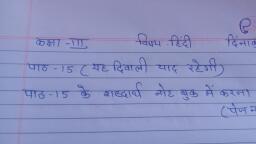 कक्षा - III विषय हिंदी दिनांक
पाठ - 15 ( यह दिवाली याद रहेगी)
पाठ - 15 के शब्दार्थ नोट बुक में करना
(पेज न